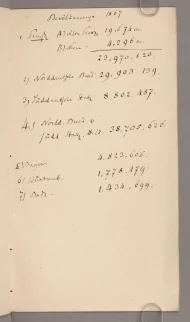 Bevölkerung 1867
1) Preuß. Altes Preuß. 19,674 m.
Neu 4,296 m.
23,970,620
2) Norddeutscher Bund. 29,903 139.
3) Süddeutsche Staaten 8.802.487.
4) Nordd. Bund u
Südd. Staaten 38,705,626.
5) Bayern 4.823,606.
6) Württemb. 1,778,479
7) Baden. 1,434,699.